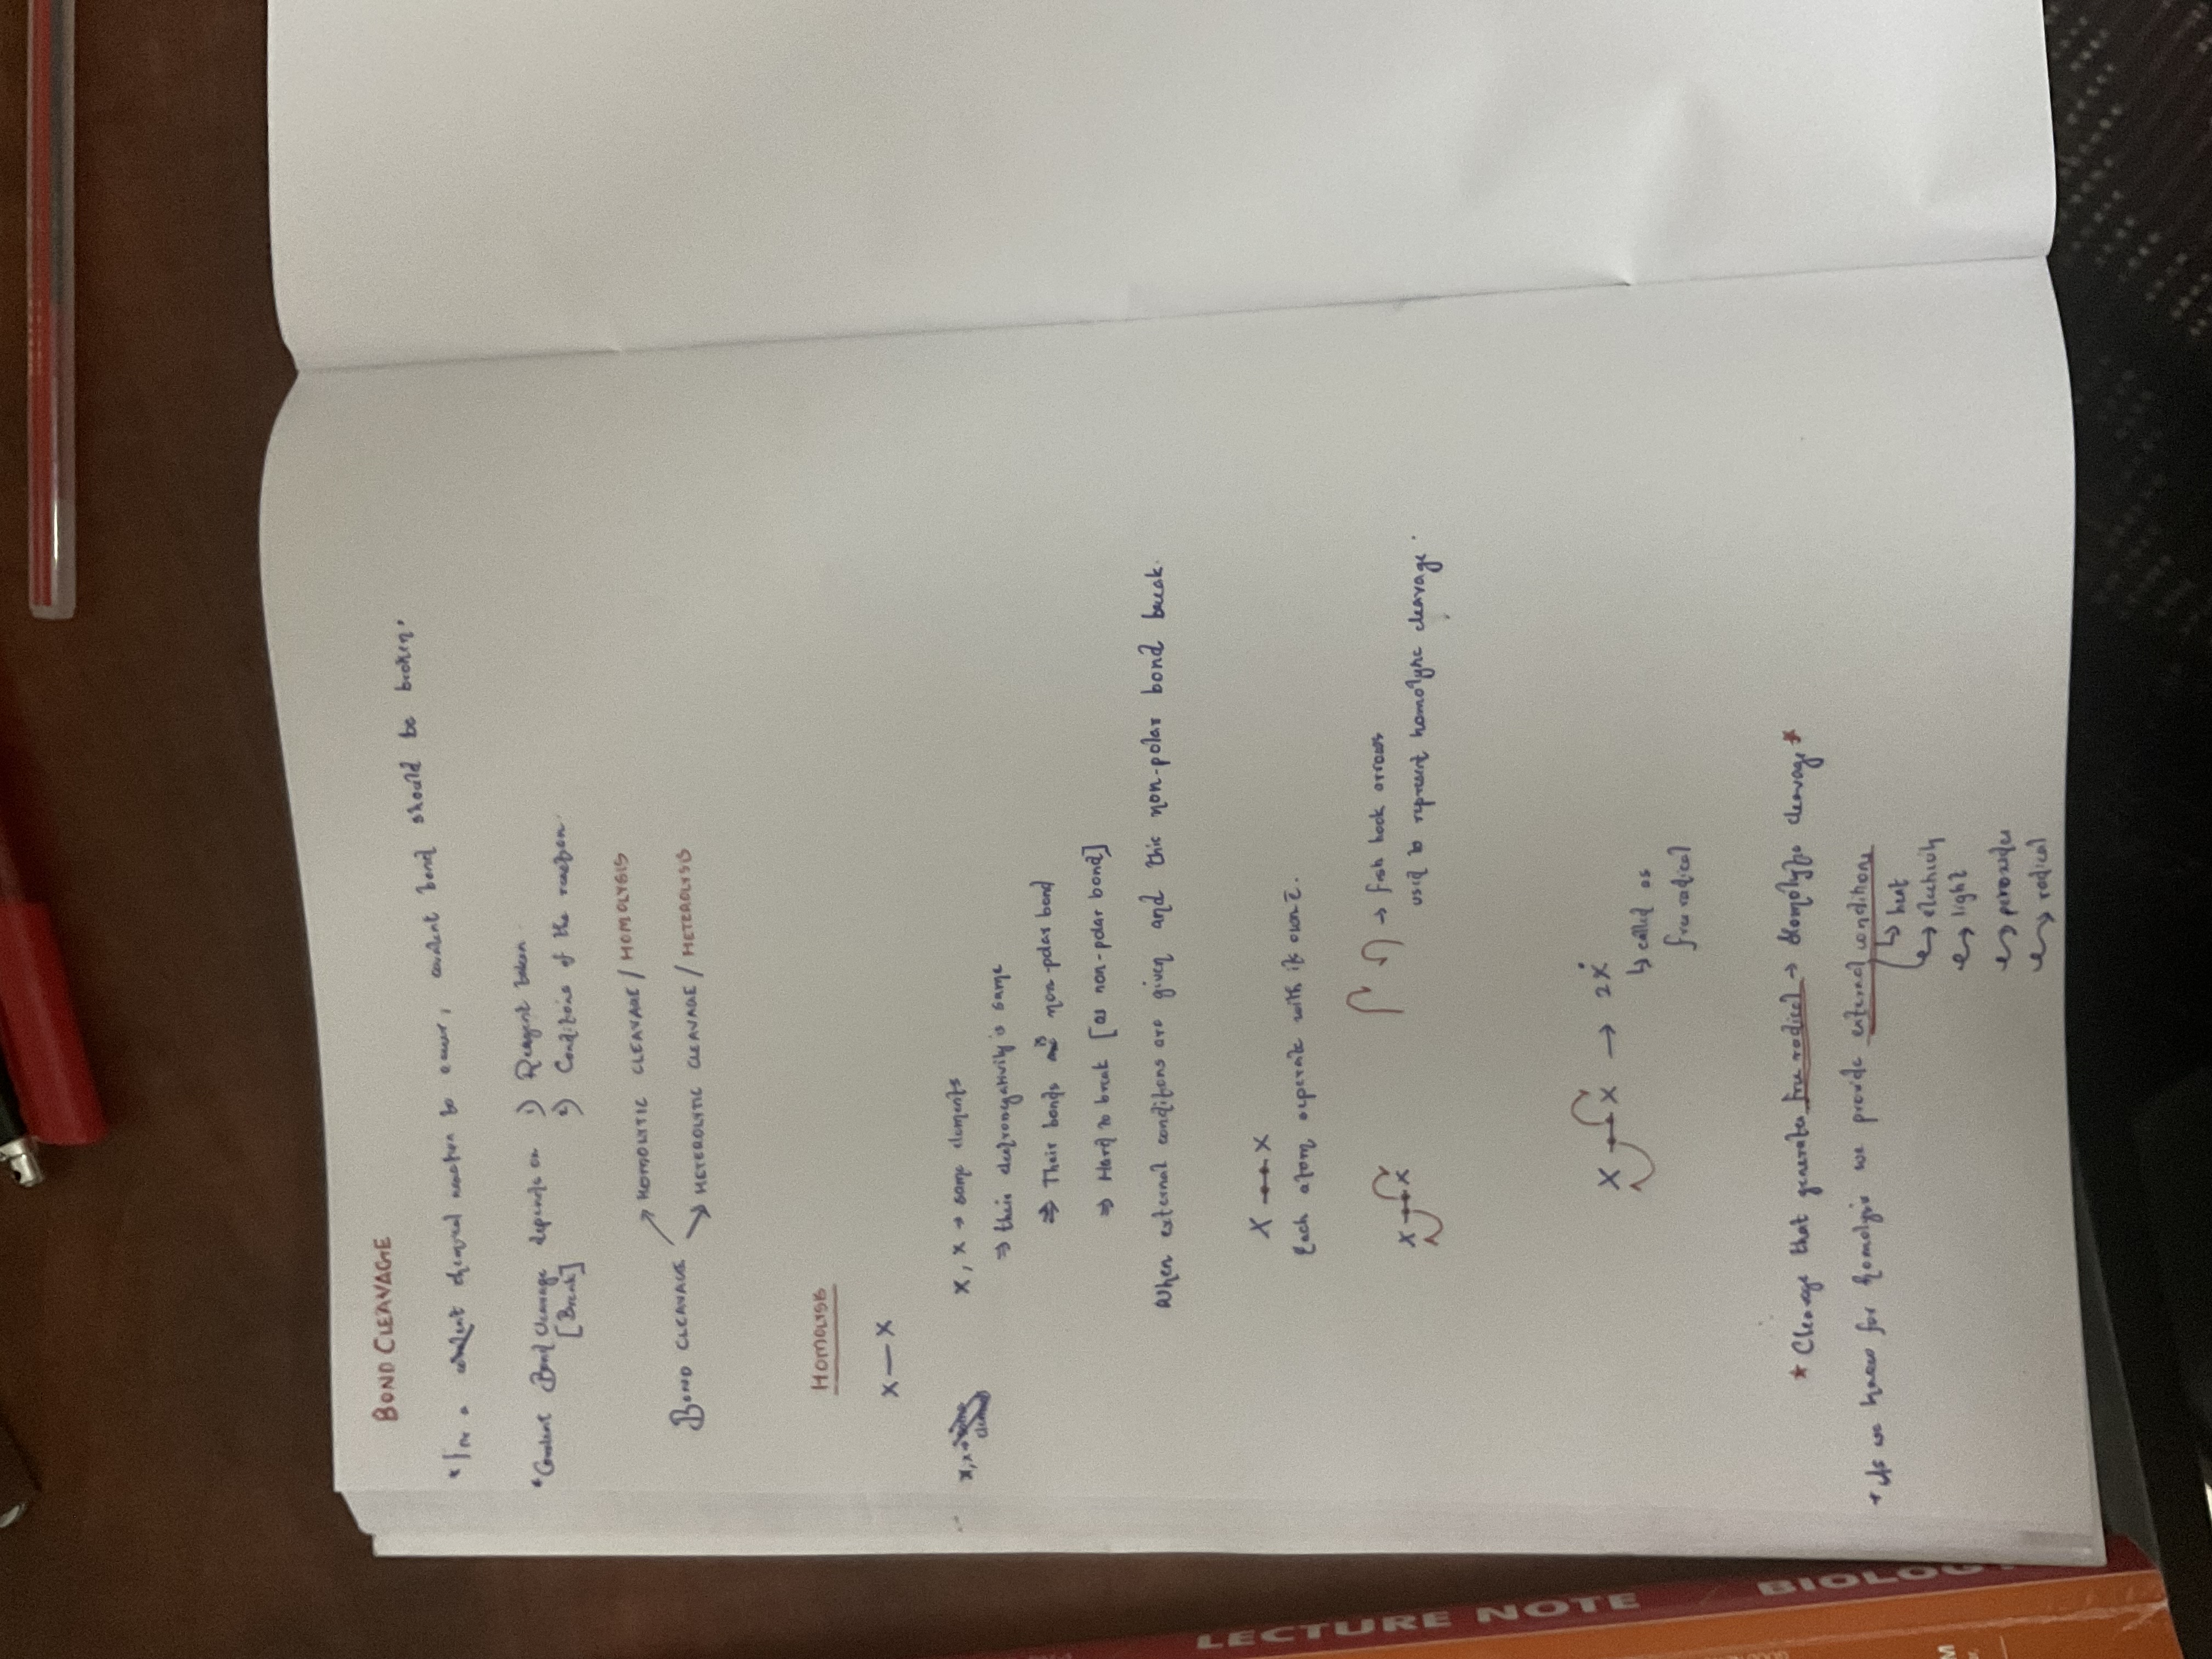 BOND CLEAVAGE
* For a chemical reaction to occur, covalent bond should be broken.
* Covalent Bond Cleavage depends on 1) Reagent taken.
[Break] 2) Conditions of the reaction.
BOND CLEAVAGE → HOMOLYTIC CLEAVAGE / HOMOLYSIS
→ HETEROLYTIC CLEAVAGE / HETEROLYSIS
HOMOLYSIS
X — X
X, X → same elements
⇒ their electronegativity is same
⇒ Their bonds is non-polar bond
⇒ Hard to break [as non-polar bond]
When external conditions are given and this non-polar bond break.
X •—• X
Each atom seperate with it own e⁻.
X •—• X
→ fish hook arrows
used to represent homolytic cleavage.
X •—• X → 2Ẋ
↳ called as
free radical
* Cleavage that generates free radical → Homolytic cleavage *
* As we know for homolysis we provide external conditions
↳ heat
↳ electricity
↳ light
↳ peroxides
↳ radical
LECTURE NOTE